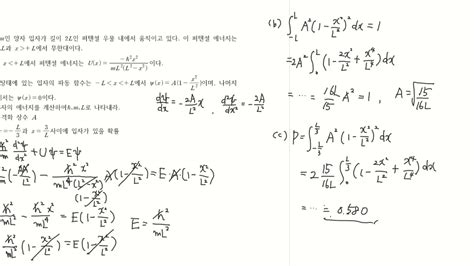 인 양자 입자가 길이 2L인 퍼텐셜 우물 내에서 움직이고 있다. 이 퍼텐셜 에너지는
L과 x > +L에서 무한대이다.
x < +L에서 퍼텐셜 에너지는 U(x) = −ℏ²x² / mL²(L²−x²) 이다.
상태에 있는 입자의 파동 함수는 −L < x < +L에서 ψ(x) = A(1 − x²/L²)이며, 나머지
에서는 ψ(x)=0이다.
입자의 에너지를 계산하여 ℏ, m, L로 나타내라.
규격화 상수 A
= −L/3 과 x = L/3 사이에 입자가 있을 확률
dψ/dx = −2A/L² x , d²ψ/dx² = −2A/L²
ℏ²/m d²ψ/dx² + Uψ = Eψ
(−2A/L²) − ℏ²x²/mL⁴(1−x²/L²) A(1−x²/L²) = E A(1−x²/L²)
ℏ²/mL² − ℏ²x²/mL⁴ = E(1−x²/L²)
E = ℏ²/mL²
ℏ²/mL² (1−x²/L²) = E(1−x²/L²)
(b) ∫_{-L}^{L} A²(1−x²/L²)² dx = 1
= 2A² ∫_0^L (1 − 2x²/L² + x⁴/L⁴) dx
= ⋯ = 16L/15 A² = 1 , A = √(15/16L)
(c) P = ∫_{-L/3}^{L/3} A²(1−x²/L²)² dx
= 2 15/16L ∫_0^{L/3} (1 − 2x²/L² + x⁴/L⁴) dx
= ⋯ = 0.580